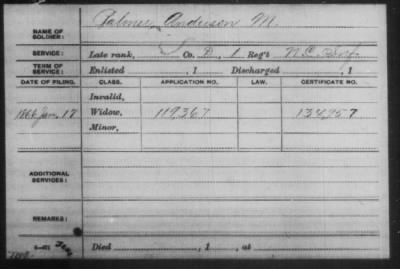 Palmer, Anderson M.
NAME OF
SOLDIER:
SERVICE: Late rank, Co. D, 1 Reg't N.C. Inf.
TERM OF
SERVICE: Enlisted , 1 Discharged , 1
DATE OF FILING. CLASS. APPLICATION NO. LAW. CERTIFICATE NO.
Invalid,
1866 Jan. 17 Widow, 119367 134957
Minor,
ADDITIONAL
SERVICES:
REMARKS:
Died , 1 , at